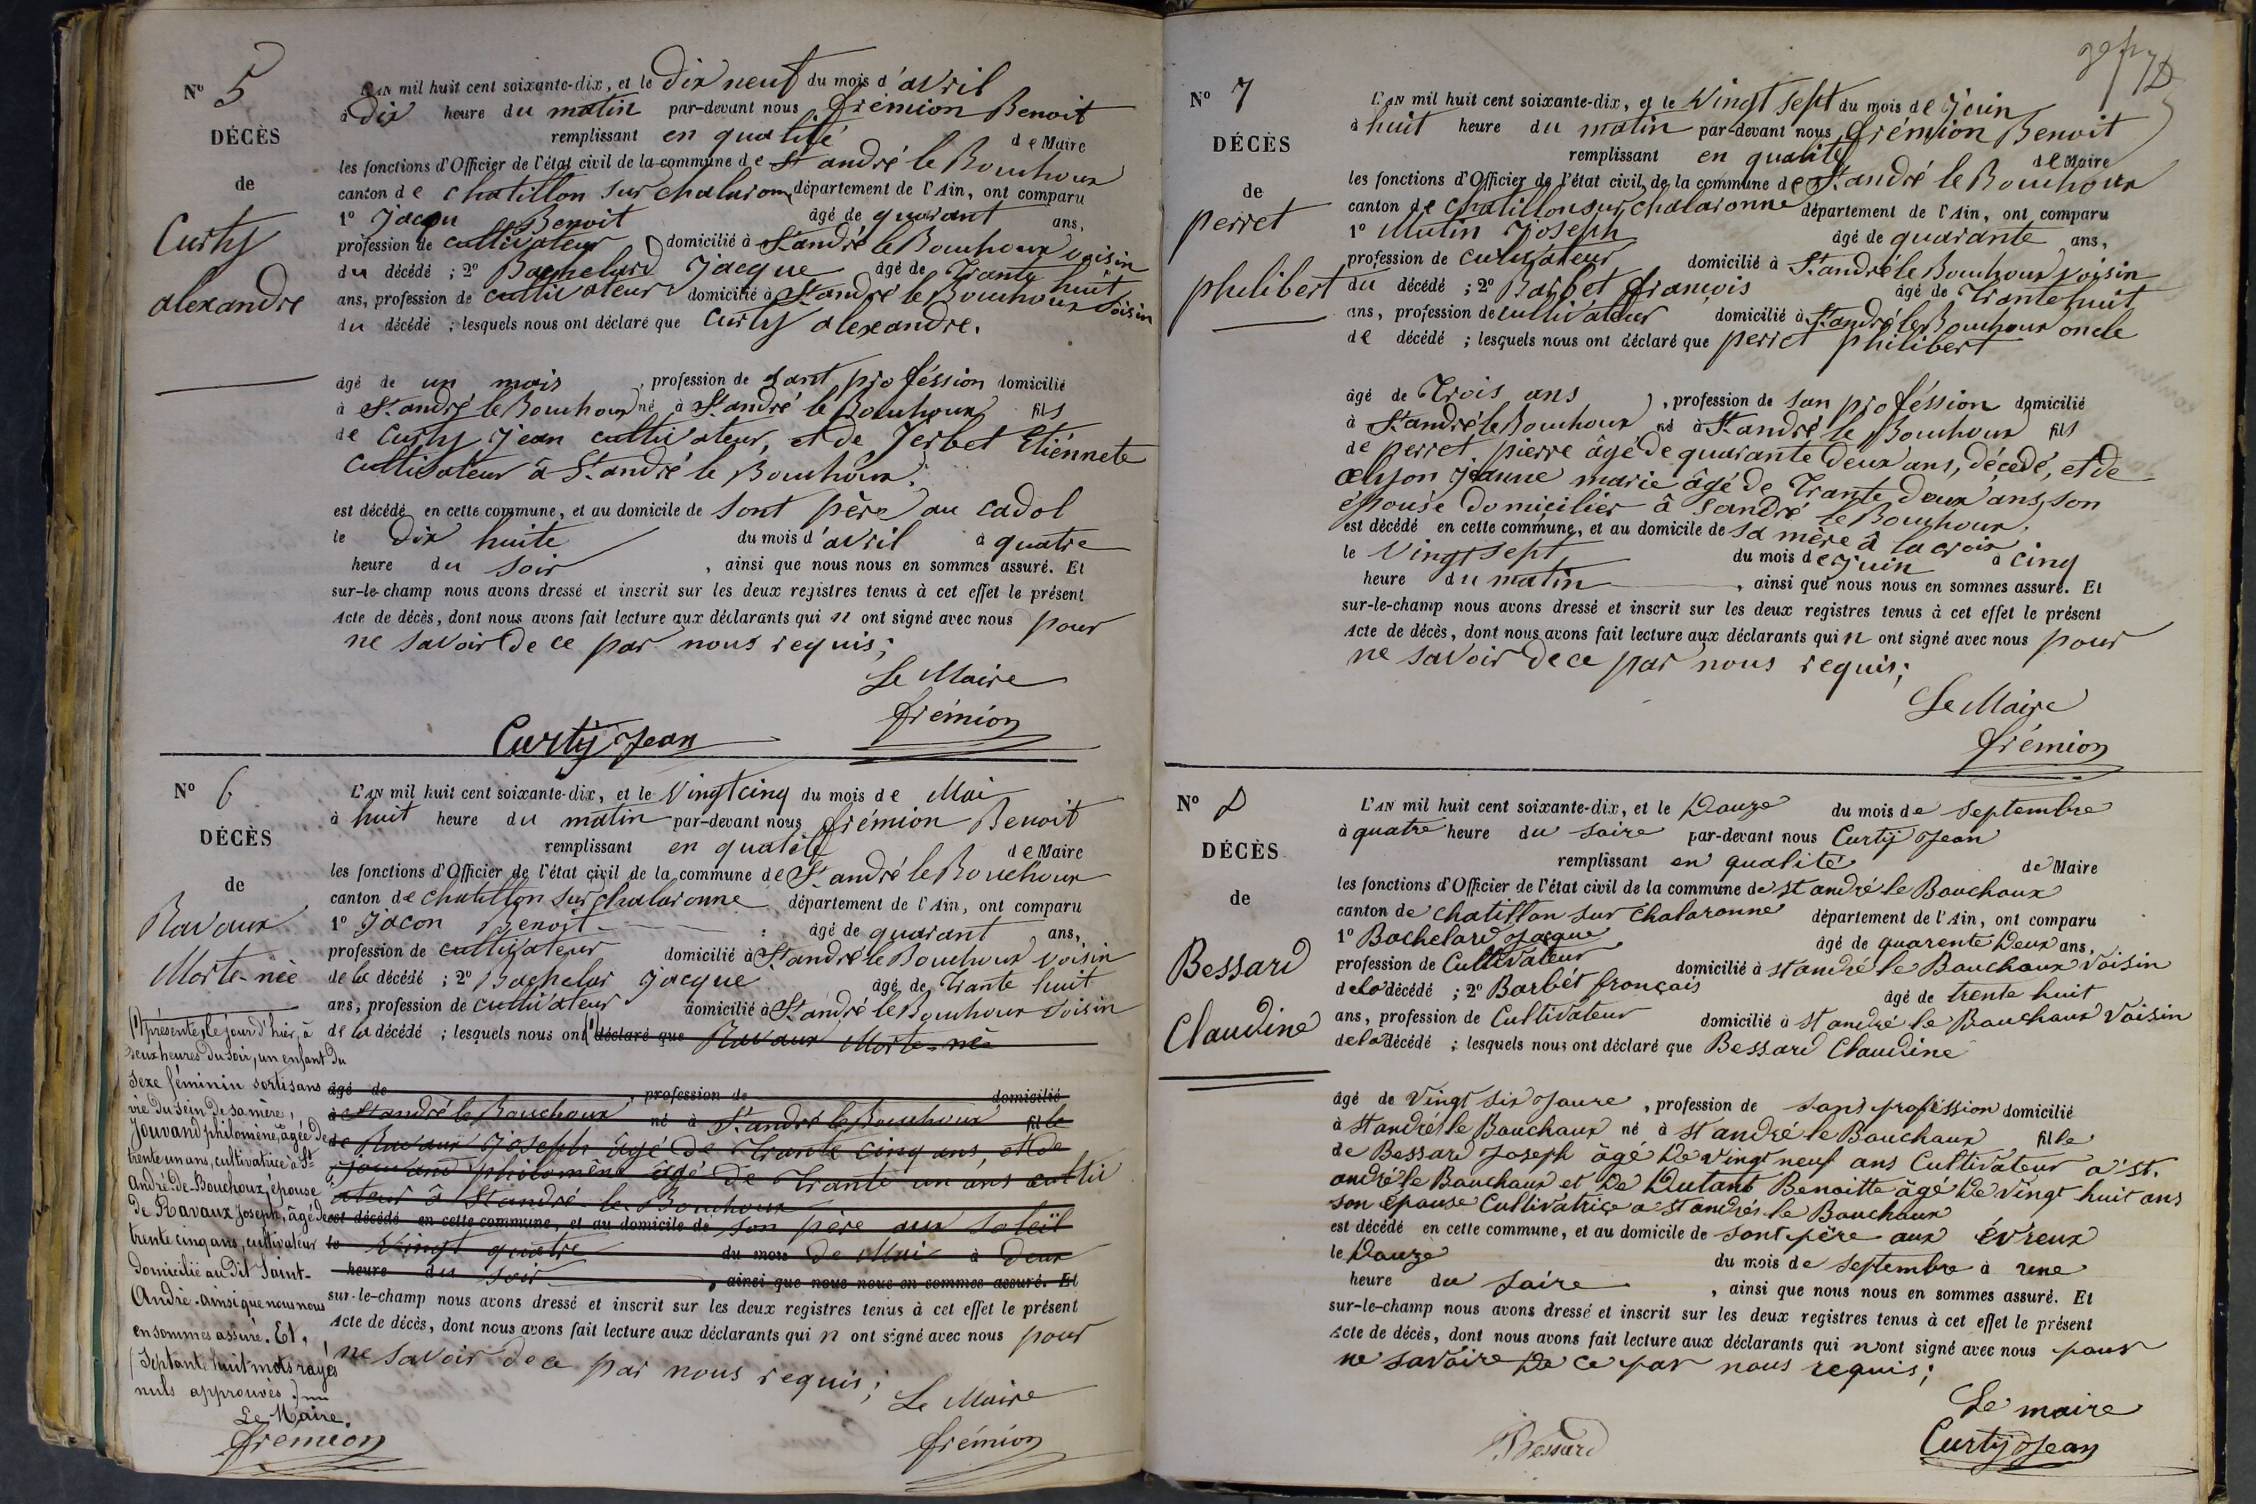 N° 5
DÉCÈS
de
Curty
alexandre
L'AN mil huit cent soixante-dix, et le dix neuf du mois d'avril
à dix heure du matin par-devant nous frémion Benoit
remplissant en qualité de Maire
les fonctions d'Officier de l'état civil de la commune de St andré le Bouchoux
canton de chatillon sur chalaronne département de l'Ain, ont comparu
1° Jacon Benoit âgé de quarant ans,
profession de cultivateur domicilié à St andré le Bouchoux voisin
du décédé ; 2° Bachelard Jacque âgé de Trante huit
ans, profession de cultivateur domicilié à St andré le Bouchoux voisin
du décédé ; lesquels nous ont déclaré que Curty alexandre.
âgé de un mois , profession de sant proféssion domicilié
à St andré le Bouchoux né à St andré le Bouchoux fils
de Curty Jean cultivateur, et de Jerbet Etiénnete
cultivateur à St andré le Bouchoux.
est décédé en cette commune, et au domicile de sont père au cadol
le dix huite du mois d'avril à quatre
heure du soir , ainsi que nous nous en sommes assuré. Et
sur-le-champ nous avons dressé et inscrit sur les deux registres tenus à cet effet le présent
Acte de décès, dont nous avons fait lecture aux déclarants qui n ont signé avec nous pour
ne savoir de ce par nous requis;
Le Maire
frémion
Curty Jean
N° 6
DÉCÈS
de
Ravaux
Morte-née
L'AN mil huit cent soixante-dix, et le Vingt cinq du mois de Mai
à huit heure du matin par-devant nous frémion Benoit
remplissant en qualité de Maire
les fonctions d'Officier de l'état civil de la commune de St andré le Bouchoux
canton de chatillon sur chalaronne département de l'Ain, ont comparu
1° Jacon Benoit âgé de quarant ans,
profession de cultivateur domicilié à St andré le Bouchoux voisin
de la décédé ; 2° Bachelar Jacque âgé de Trante huit
ans, profession de cultivateur domicilié à St andré le Bouchoux voisin
de la décédé ; lesquels nous ont (1) déclaré que Ravaux Morte-née
âgé de , profession de domicilié
à St andré le Bouchoux né à St andré le Bouchoux fille
de Ravaux Joseph âgé de Trante cinq ans, et de
Jouvand philoméne agé de Trante un ans cultiv
ateur à St andré le Bouchoux
est décédé en cette commune, et au domicile de son père aux soleil
le Vingt quatre du mois de Mai à deux
heure du soir , ainsi que nous nous en sommes assuré. Et
sur-le-champ nous avons dressé et inscrit sur les deux registres tenus à cet effet le présent
Acte de décès, dont nous avons fait lecture aux déclarants qui n ont signé avec nous pour
ne savoir de ce par nous requis;
Le Maire
frémion
(1) présenté, le jour d'hier, à
deux heures du soir, un enfant du
sexe féminin sorti sans
vie du sein de sa mère,
Jouvand philomène, âgée de
trente un ans, cultivatrice à St
André-de-Bouchoux, épouse
de Ravaux Joseph, âgé de
trente cinq ans, cultivateur
domicilié au dit Saint-
André. ainsi que nous nous
en sommes assuré. Et,
(Septante huit mots rayés
nuls approuvés.)
Le Maire,
frémion
N° 7
DÉCÈS
de
perret
philibert
L'AN mil huit cent soixante-dix, et le Vingt sept du mois de Juin
à huit heure du matin par-devant nous frémion Benoit
remplissant en qualité de Maire
les fonctions d'Officier de l'état civil de la commune de St andré le Bouchoux
canton de chatillon sur chalaronne département de l'Ain, ont comparu
1° Mutin Joseph âgé de quarante ans,
profession de cultivateur domicilié à St andré le Bouchoux voisin
du décédé ; 2° Barbet françois âgé de Trante huit
ans, profession de cultivateur domicilié à St andré le Bouchoux oncle
de décédé ; lesquels nous ont déclaré que perret philibert
âgé de Trois ans , profession de san proféssion domicilié
à St andré le Bouchoux né à St andré le Bouchoux fils
de perret pierre âgé de quarante deux ans, décédé, et de
jeanne marie âgé de Trante deux ans, son
épouse domicilier à S andré le Bouchoux.
est décédé en cette commune, et au domicile de sa mère à la crois
le Vingt sept du mois de Juin à cinq
heure du matin , ainsi que nous nous en sommes assuré. Et
sur-le-champ nous avons dressé et inscrit sur les deux registres tenus à cet effet le présent
Acte de décès, dont nous avons fait lecture aux déclarants qui n ont signé avec nous pour
ne savoir de ce par nous requis;
Le Maire
frémion
N° 8
DÉCÈS
de
Bessard
Claudine
L'AN mil huit cent soixante-dix, et le Douze du mois de Septembre
à quatre heure du soire par-devant nous Curty Jean
remplissant en qualité de Maire
les fonctions d'Officier de l'état civil de la commune de st andré le Bouchoux
canton de chatillon sur chalaronne département de l'Ain, ont comparu
1° Bachelard Jacque âgé de quarente Deux ans,
profession de Cultivateur domicilié à st andré le Bouchoux voisin
de la décédé ; 2° Barbét français âgé de trente huit
ans, profession de Cultivateur domicilié à st andré le Bouchoux voisin
de la décédé ; lesquels nous ont déclaré que Bessard Claudine
âgé de vingt six Joure , profession de sans proféssion domicilié
à st andré le Bouchoux né à st andré le Bouchoux fille
de Bessard Joseph âgé De vingt neuf ans Cultivateur a St.
andré le Bouchoux et De Dutant Benoitte âgé De vingt huit ans
son épouse Cultivatrice a st andrés le Bouchoux
est décédé en cette commune, et au domicile de sont père aux évreux
le Douze du mois de septembre à une
heure du saire , ainsi que nous nous en sommes assuré. Et
sur-le-champ nous avons dressé et inscrit sur les deux registres tenus à cet effet le présent
Acte de décès, dont nous avons fait lecture aux déclarants qui n'ont signé avec nous pour
ne savoire De ce par nous requis;
Le maire
Curty Jean
Bessard